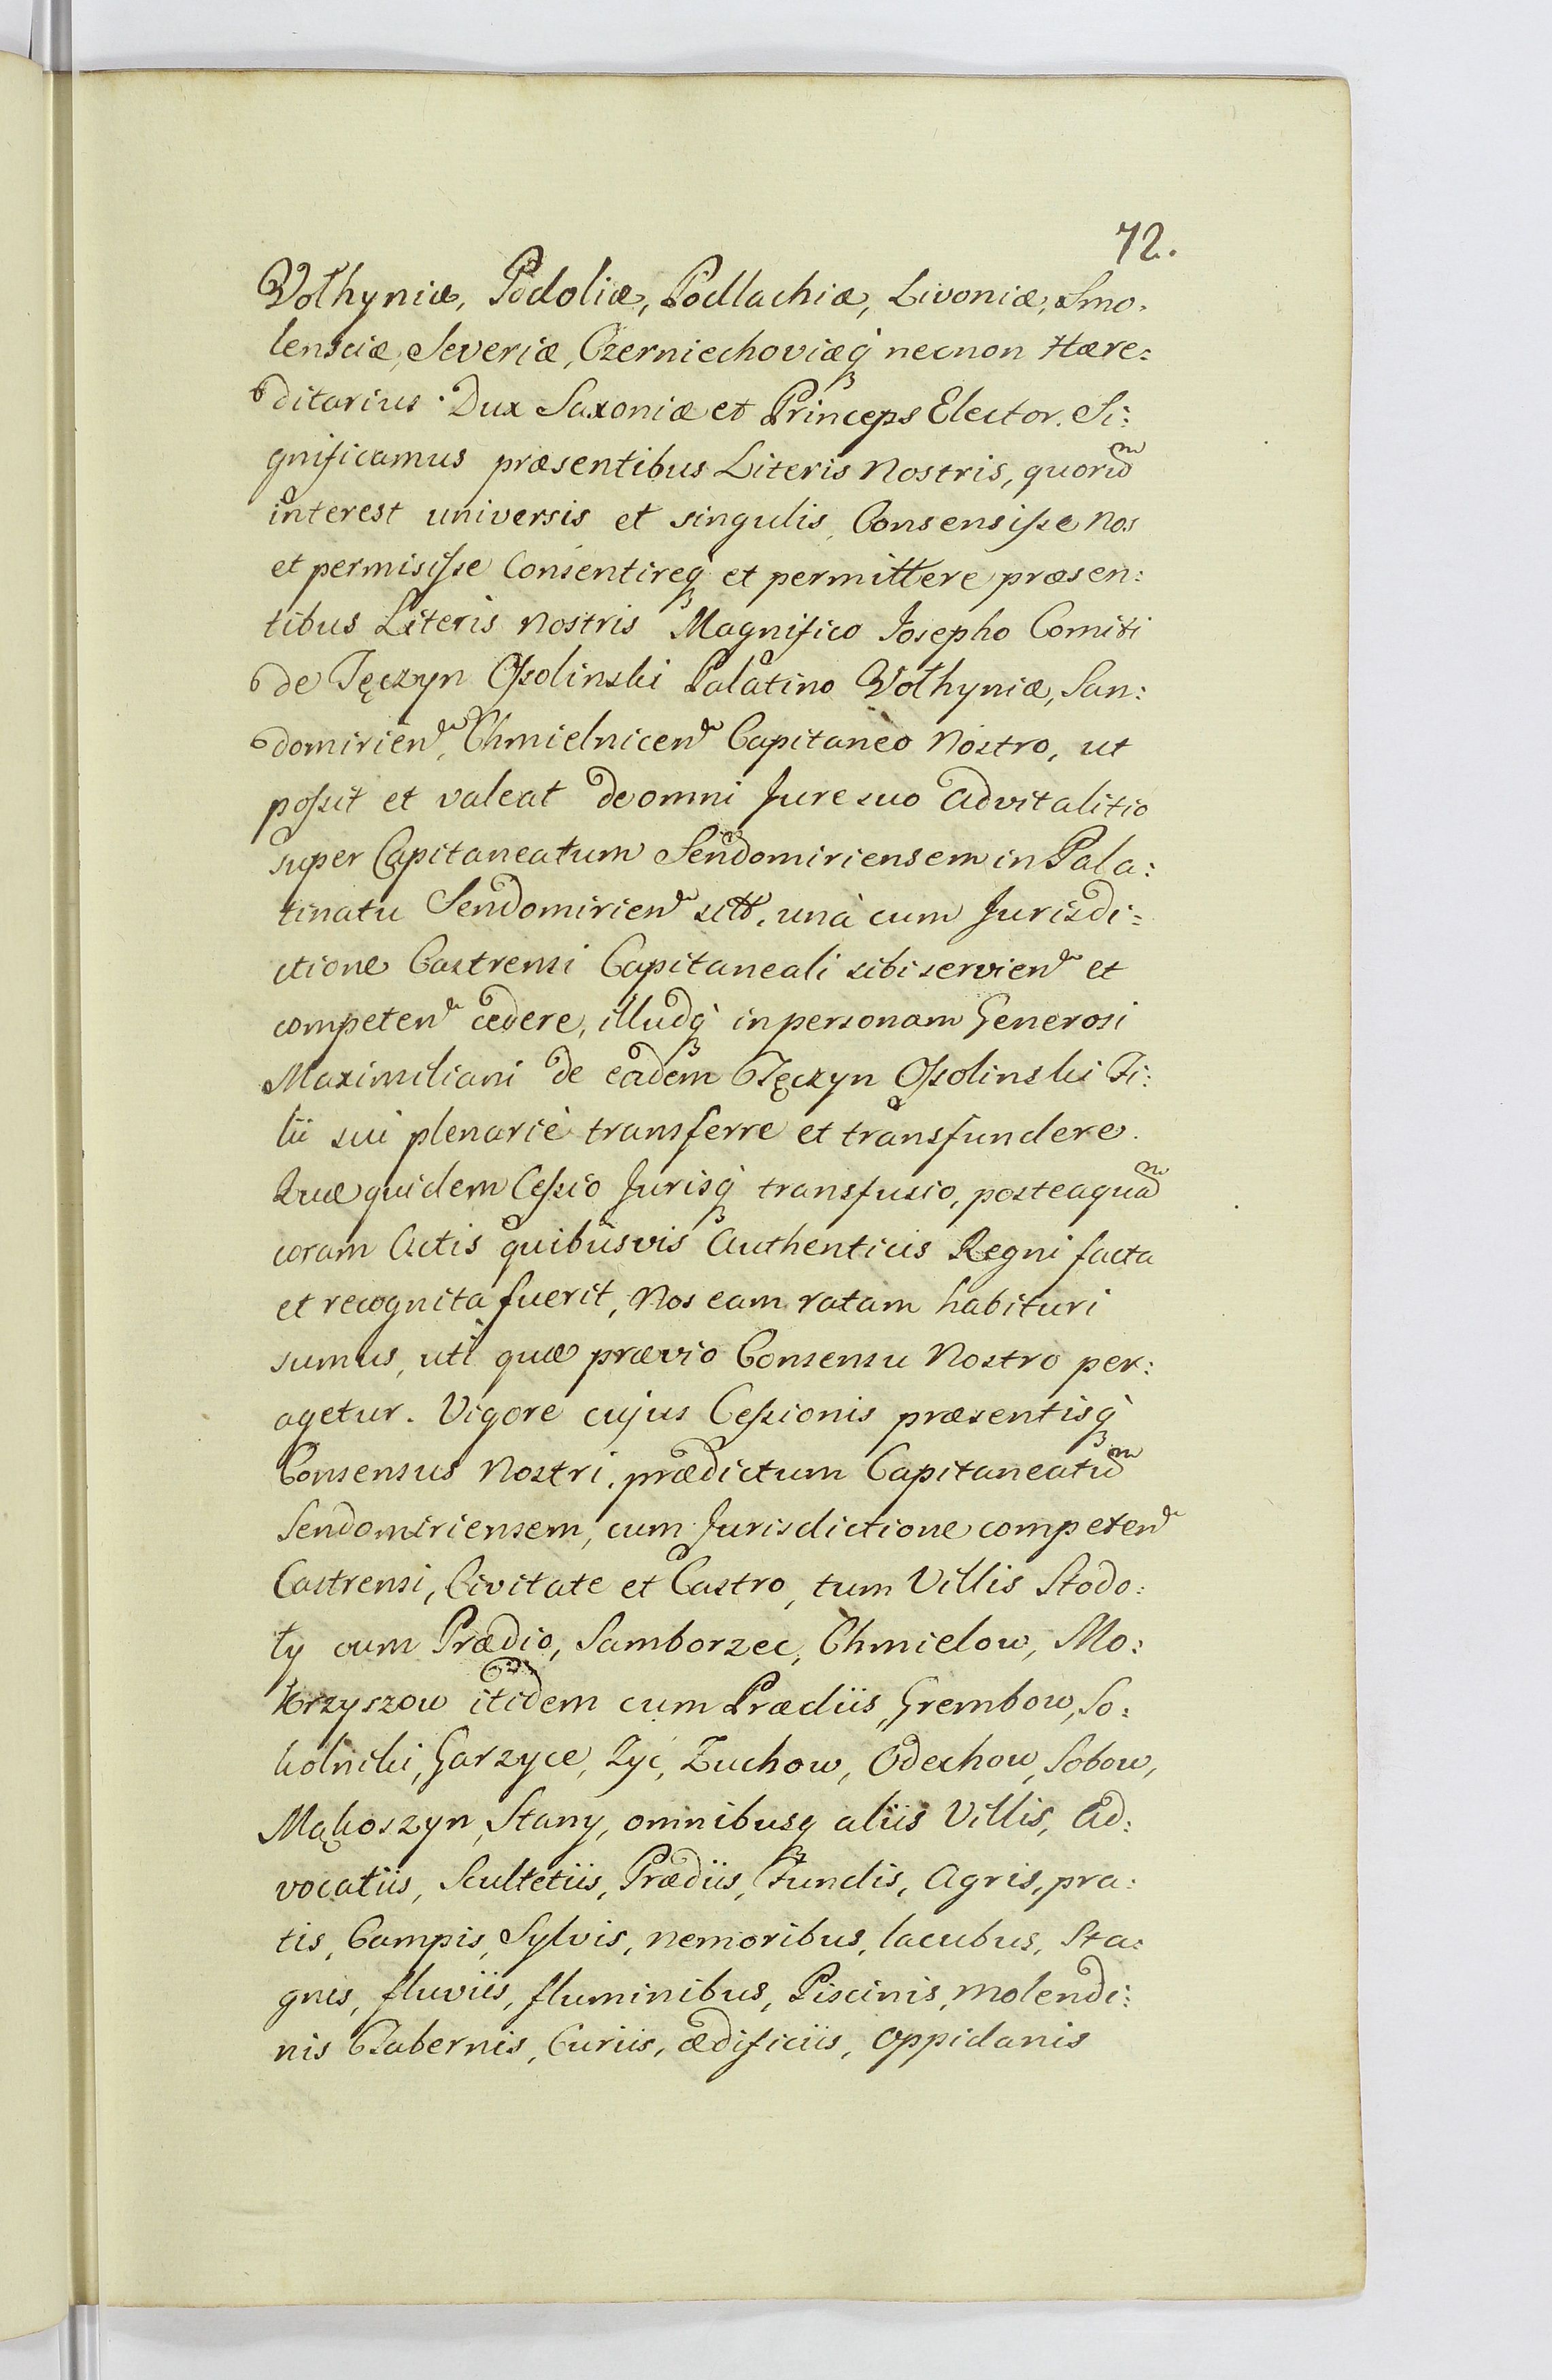 72.
Volhyniæ, Podoliæ, Podlachiæ, Livoniæ, Smo-
lensciæ, Severiæ, Czerniechoviæq́ȝ necnon Hære:
ditarius Dux Saxoniæ et Princeps Elector. Si:
gnificamus præsentibus Literis Nostris, quorũ
interest universis et singulis, Consensiſse Nos
et permisiſse Consentireq́ȝ et permittere præsen:
tibus Literis Nostris Magnifico Josepho Comiti
de Tęczyn Oſsolinski Palatino Volhyniæ, San:
domirien̄, Chmielnicen̄ Capitaneo Nostro, ut
poſsit et valeat de omni Jure suo Advitalitio
super Capitaneatum Sendomiriensem in Pala:
tinatu Sendomirien̄ sitt, unà cum Jurisdi:
ctione Castrensi Capitaneali sibi servien̄ et
competen̄ cedere, illudq́ȝ in personam Generosi
Maximiliani de eadem Tęczyn Oſsolinski Fi:
lii sui plenariè transferre et transfundere.
Quæ quidem Ceſsio Jurisq́ȝ transfusio, posteaquã
coram Actis quibusvis Authenticis Regni facta
et recognita fuerit, Nos eam ratam habituri
sumus, uti quæ prævio Consensu Nostro per:
agetur. Vigore cujus Ceſsionis præsentisq́ȝ
Consensus Nostri, prædictum Capitaneatũ
Sendomiriensem, cum Jurisdictione competen̄
Castrensi, Civitate et Castro, tum Villis Stodo:
ły cum Prædio, Samborzec, Chmielow, Mo:
krzyszow itidem cum Prædiis, Grembow, So:
kolniki, Gorzyce, Żyć, Zuchow, Odechow, Sobow,
Mąkoszyn, Stany, omnibusqȝ aliis Villis, Ad:
vocatiis, Scultetiis, Prædiis, Fundis, Agris, pra:
tis, Campis, Sylvis, nemoribus, lacubus, Sta:
gnis, fluviis, fluminibus, Piscinis, molendi:
nis Tabernis, Curiis, ædificiis, Oppidanis